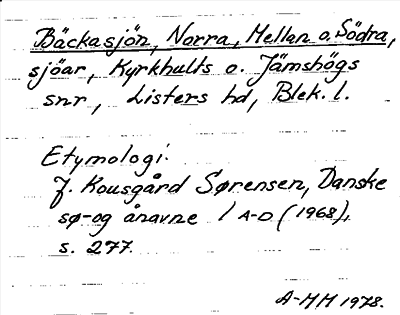 Bäckasjön, Norra, Mellan o. Södra,
sjöar, Kyrkhults o. Jämshögs
snr, Listers hd, Blek. l.
Etymologi:
J. Kousgård Sørensen, Danske
sø- og ånavne 1 A-D (1968),
s. 277.
A-MH 1978.